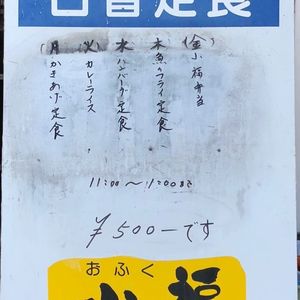 日替定食
(月) かきあげ定食
(火) カレーライス
(水) ハンバーグ定食
(木) 魚のフライ定食
(金) 小福弁当
11:00～1:00まで
¥500-です
おふく
小福